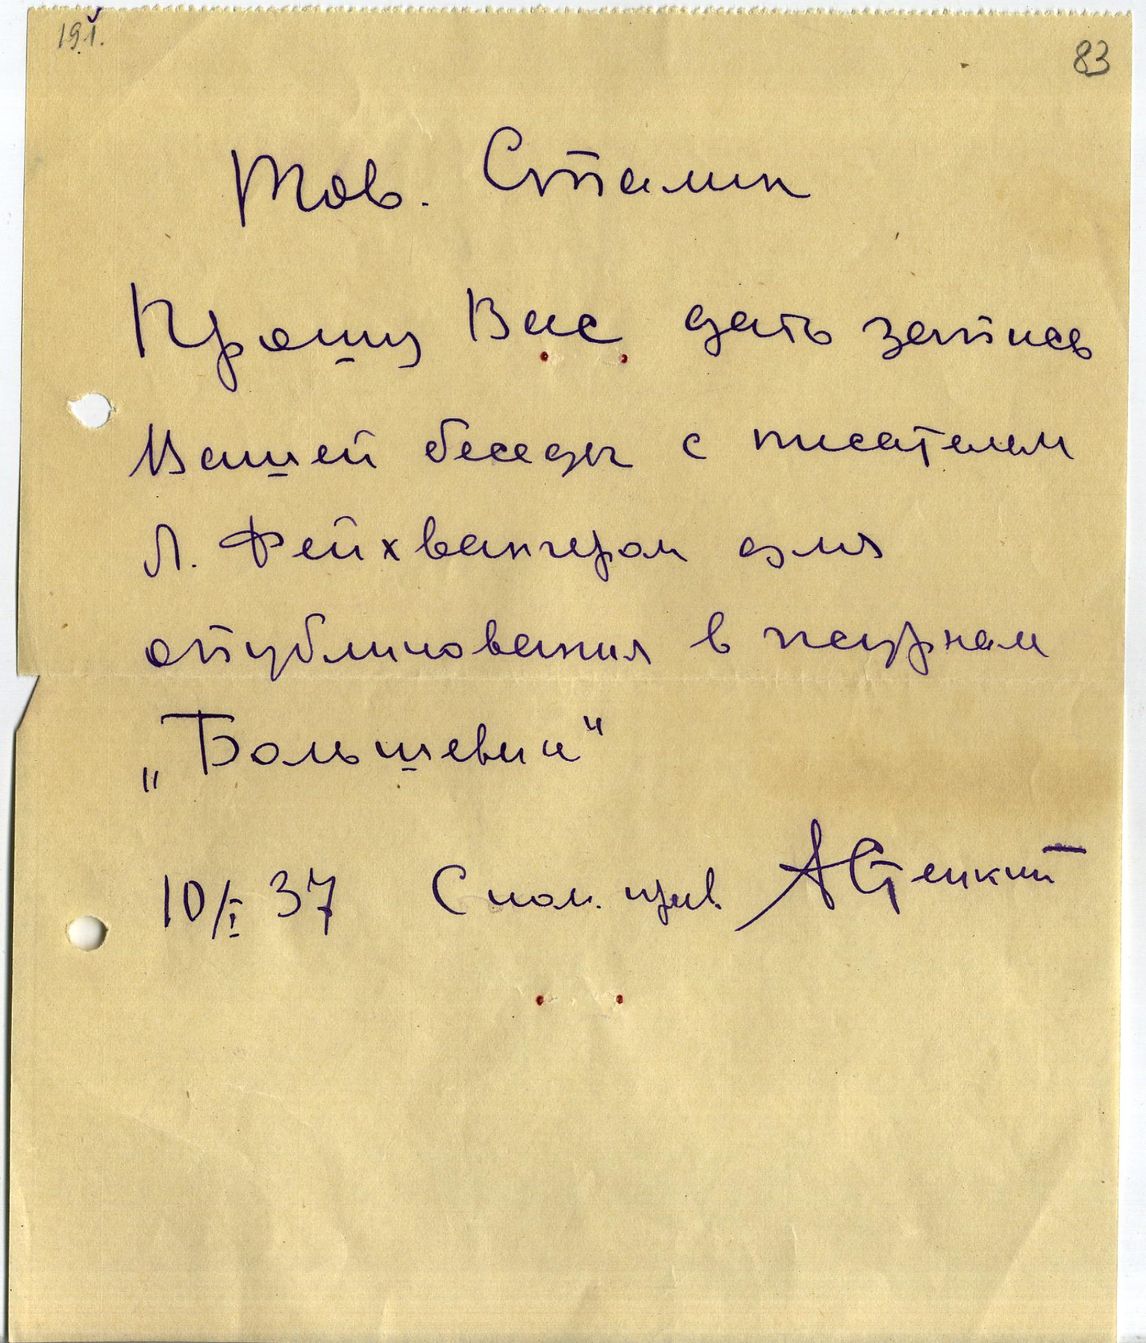 191.
83
Тов. Сталин
Прошу Вас дать запись
Вашей беседы с писателем
Л. Фейхвангером для
опубликования в журнал
„Большевик“
10/I 37 С ком. прив. АСтецкий